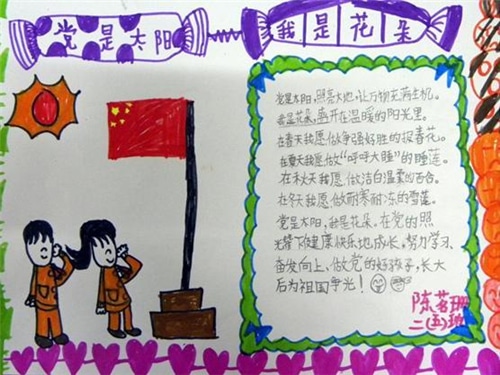 党是太阳
我是花朵
党是太阳,照亮大地,让万物充满生机。
我是花朵,盛开在温暖的阳光里。
在春天我愿做争强好胜的探春花。
在夏天我愿做“呼呼大睡”的睡莲。
在秋天我愿做洁白温柔的百合。
在冬天我愿做耐寒耐冻的雪莲。
党是太阳,我是花朵。在党的照
光辉下健康快乐地成长。努力学习、
奋发向上,做党的好孩子,长大
后为祖国争光!
陈茗珊
二(五)班